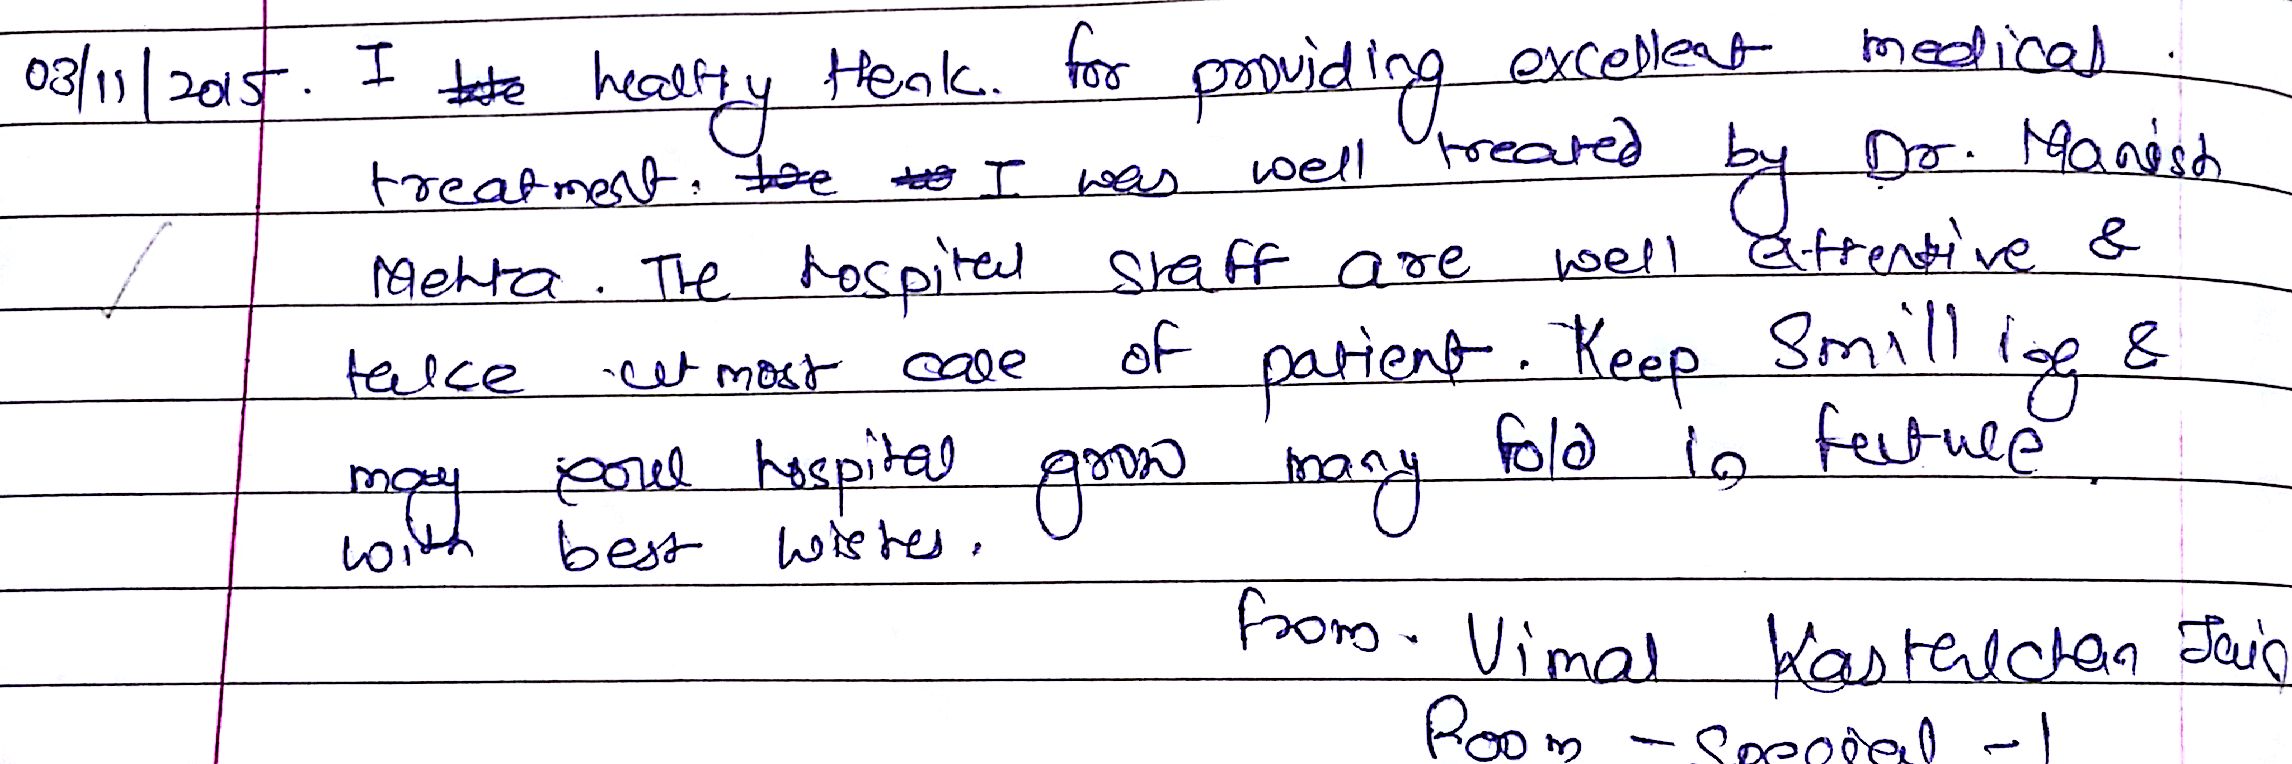 03/11/2015. I healty thenk. for providing excellent medical
treatment. I was well treated by Dr. Manish
Mehta. The hospital staff are well attentive &
take utmost care of patient. Keep Smilling &
may your hospital grow many fold in future.
with best wishes.
from. Vimal Kasturchan Jain
Room - Special - 1